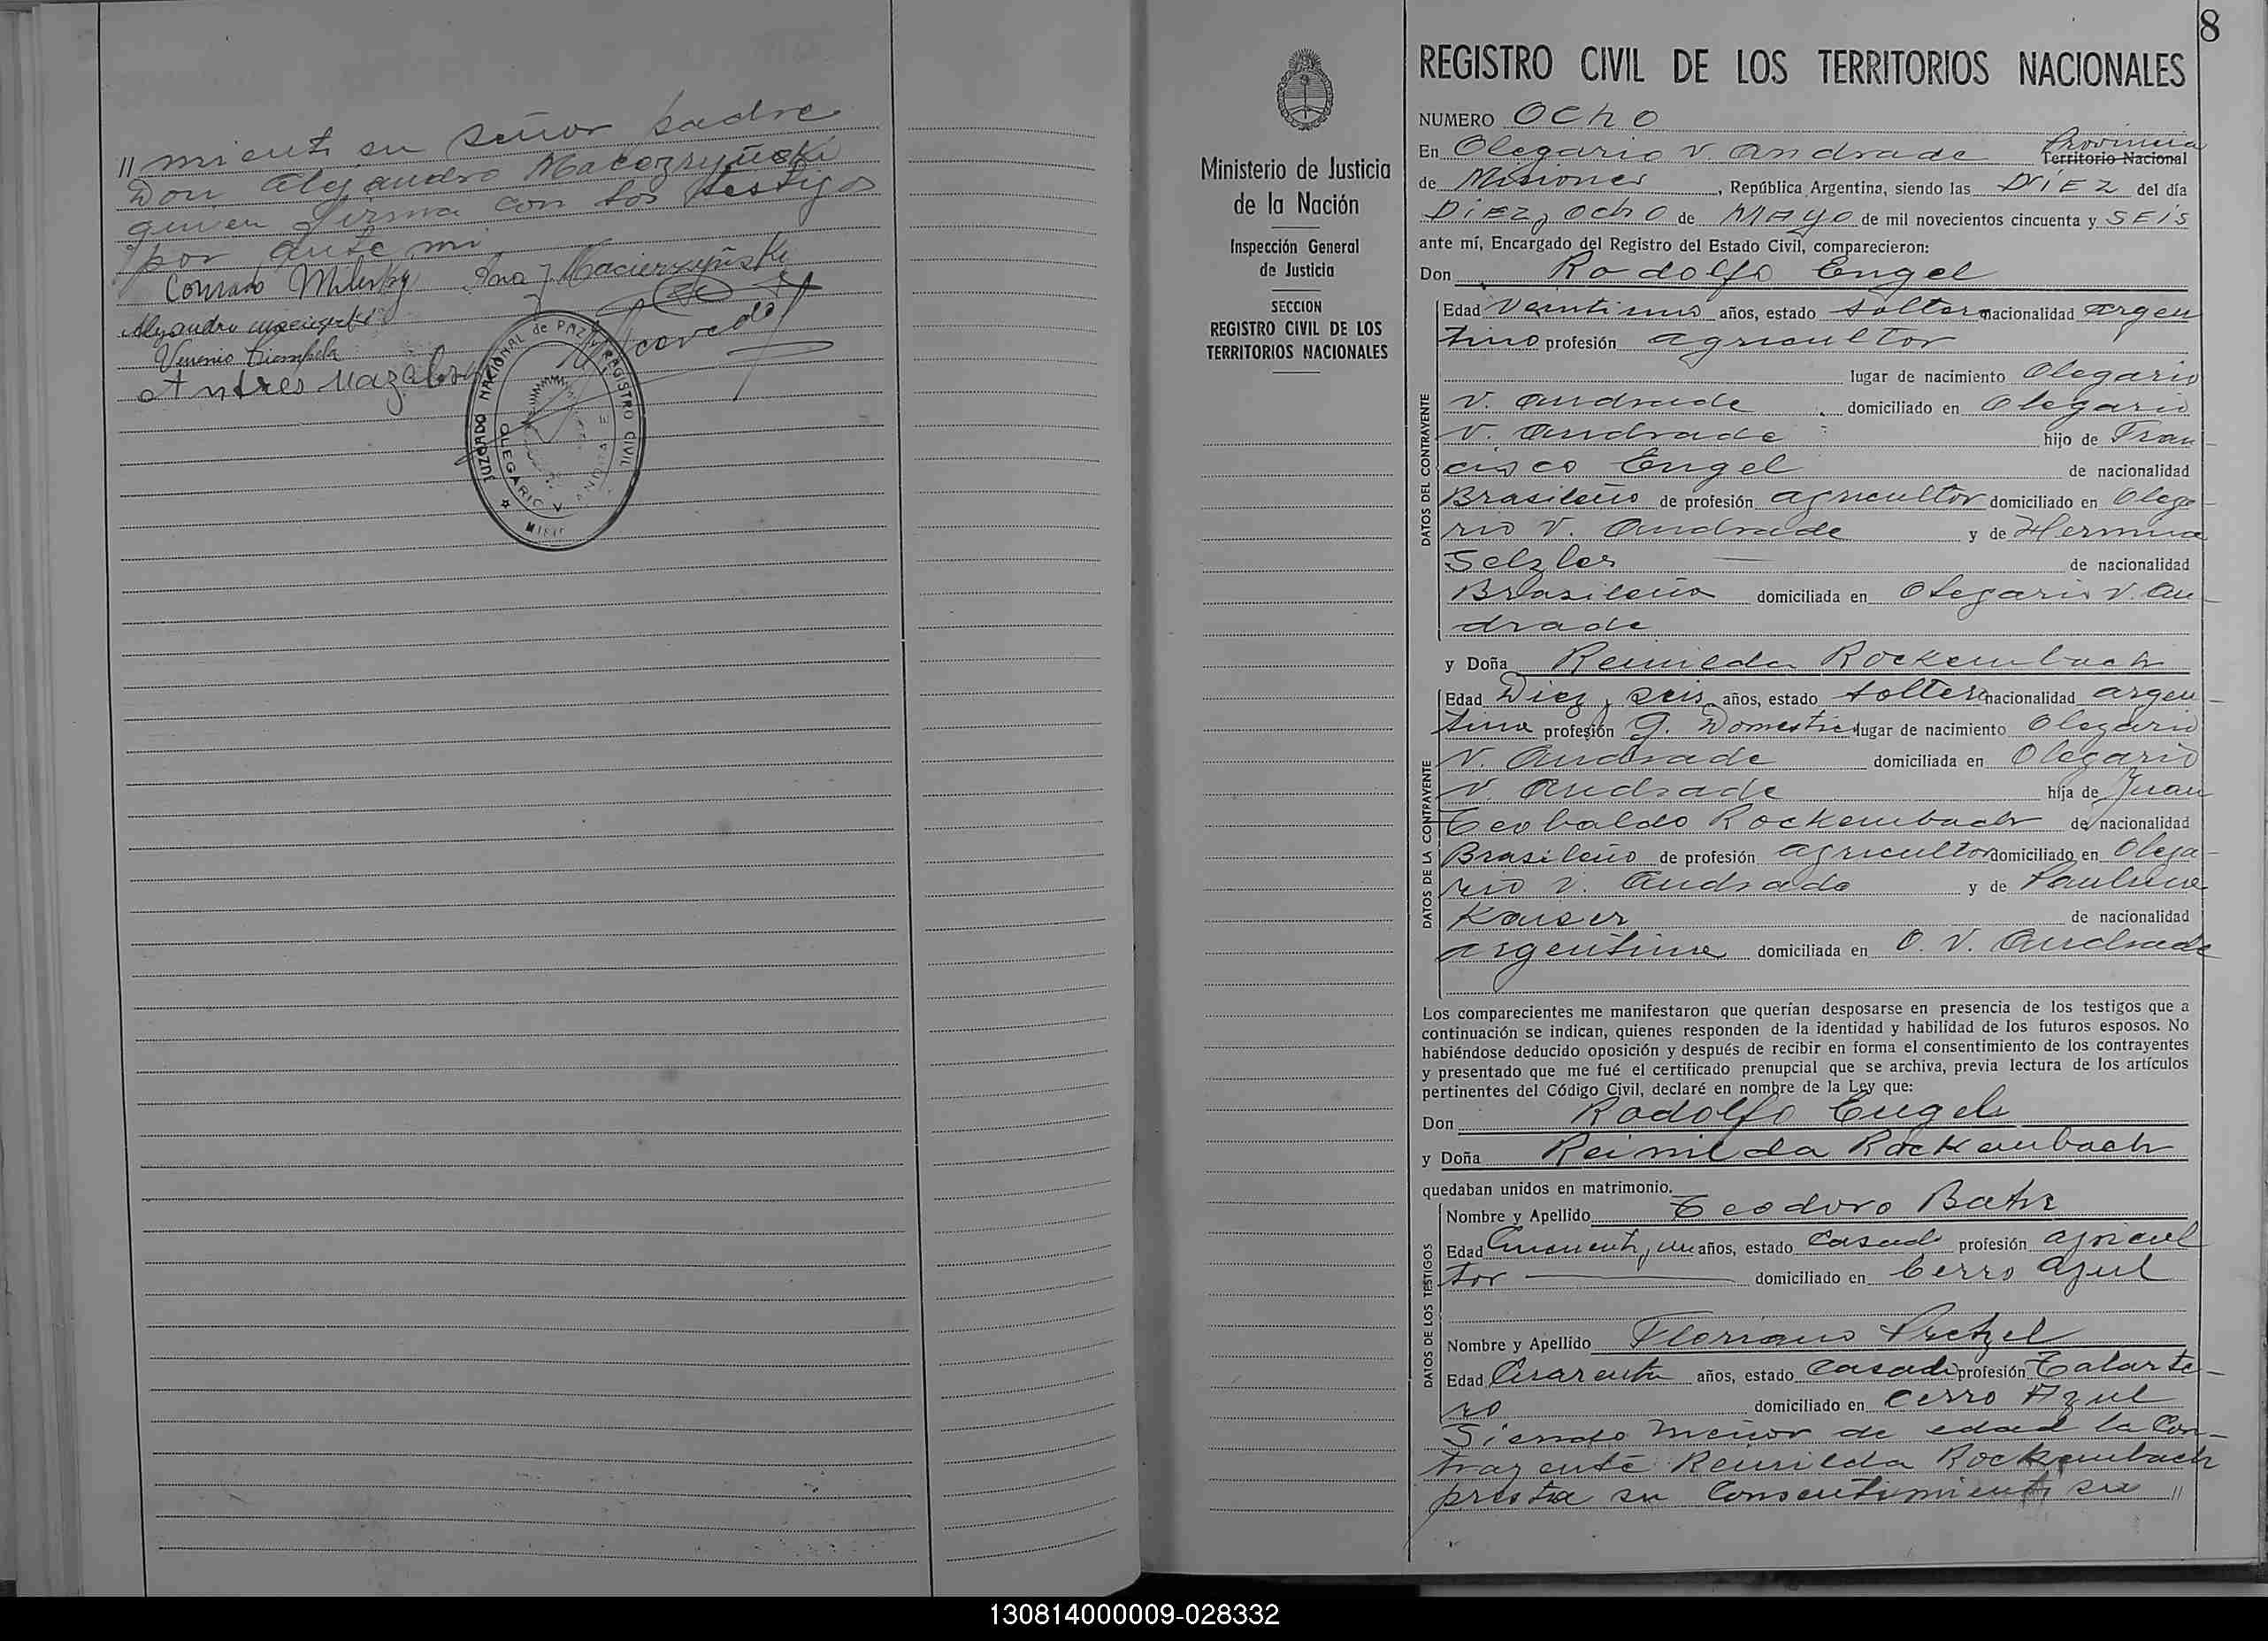 // miento su señor padre
Don Alejandro Macozryñski
quien firma con los testigos
por ante mi
Conrado Ana J Macierzyñski
Alejandro
Andres
JUZGADO NACIONAL de PAZ y REGISTRO CIVIL
OLEGARIO V. ANDRADE
8
Ministerio de Justicia
de la Nación
Inspección General
de Justicia
SECCION
REGISTRO CIVIL DE LOS
TERRITORIOS NACIONALES
REGISTRO CIVIL DE LOS TERRITORIOS NACIONALES
NUMERO Ocho
En Olegario V. Andrade Provincia Territorio Nacional
de Misiones, República Argentina, siendo las DiEz del día
DiEz y ocho de MAyo de mil novecientos cincuenta y SEis
ante mí, Encargado del Registro del Estado Civil, comparecieron:
Don Rodolfo Engel
DATOS DEL CONTRAVENTE
Edad Veintiuno años, estado soltero nacionalidad argen
tino profesión agricultor
lugar de nacimiento Olegario
V. Andrade domiciliado en Olegario
V. Andrade hijo de Fran
cisco Engel de nacionalidad
Brasileño de profesión agricultor domiciliado en Olega-
rio V. Andrade y de Hermina
Selzler de nacionalidad
Brasileña domiciliada en Olegario V. An-
drade
y Doña Reinilda Rockembach
DATOS DE LA CONTRAVENTE
Edad Diez y seis años, estado soltera nacionalidad argen-
tina profesión q. Domestic lugar de nacimiento Olegario
V. Andrade domiciliada en Olegario
V. Andrade hija de Juan
Teobaldo Rockembach de nacionalidad
Brasileño de profesión agricultor domiciliado en Olega-
rio V. Andrade y de Paulina
Kaiser de nacionalidad
argentina domiciliada en O. V. Andrade
Los comparecientes me manifestaron que querían desposarse en presencia de los testigos que a
continuación se indican, quienes responden de la identidad y habilidad de los futuros esposos. No
habiéndose deducido oposición y después de recibir en forma el consentimiento de los contrayentes
y presentado que me fué el certificado prenupcial que se archiva, previa lectura de los artículos
pertinentes del Código Civil, declaré en nombre de la Ley que:
Don Rodolfo Engel
y Doña Reinilda Rockembach
quedaban unidos en matrimonio.
DATOS DE LOS TESTIGOS
Nombre y Apellido Teodoro Bahr
Edad Cincuenta y un años, estado Casado profesión agricul
tor domiciliado en Cerro Azul
Nombre y Apellido Floriano Pretzel
Edad Cuarenta años, estado Casado profesión Talarte-
ro domiciliado en Cerro Azul
Siendo menor de edad la Con-
trayente Reinilda Rockembach
presta su Consentimiento su //
130814000009-028332